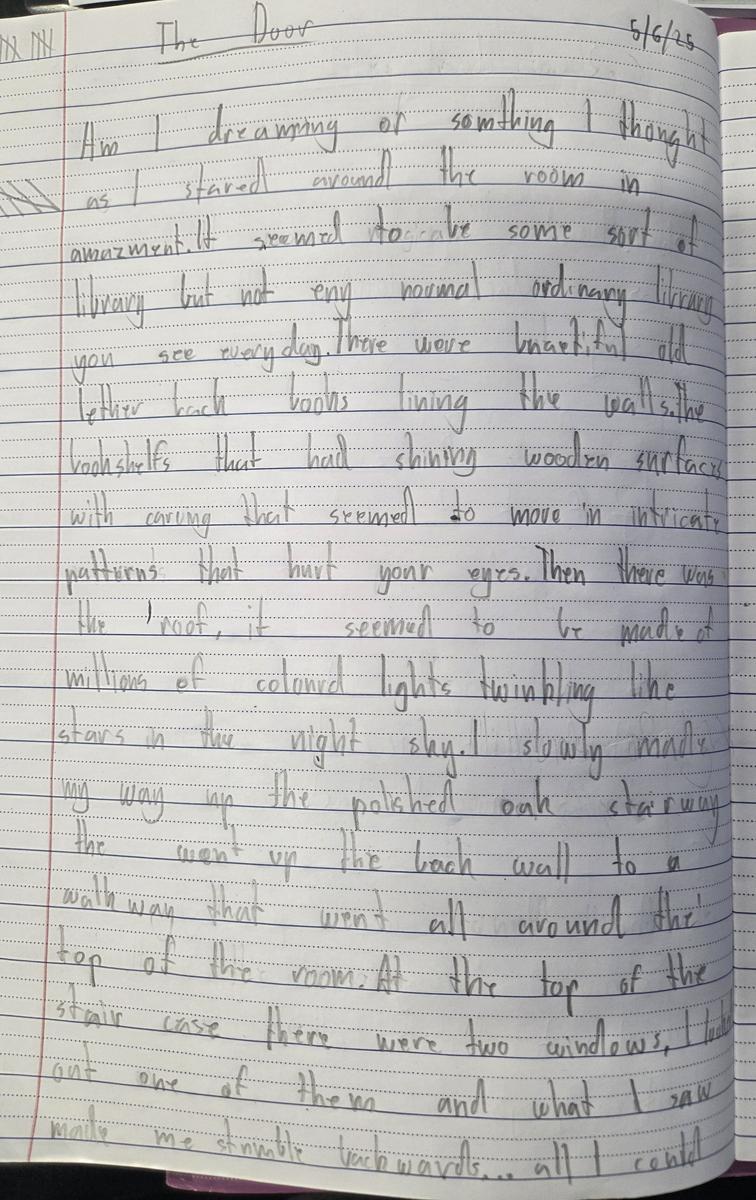 The Door 5/6/25
Am I dreaming or somthing I thought
as I stared around the room in
amazment. It seemed to be some sort of
library but not eny normal ordinary library
you see everyday. There were buaetiful old
lether back books lining the walls. the
bookshelfs that had shining wooden surfaces
with carving that seemed to move in intricate
patterns that hurt your eyes. Then there was
the roof, it seemed to be made of
millions of colourd lights twinkling like
stars in the night sky. I slowly made
my way up the polished oak stairway
the went up the back wall to a
walkway that went all around the
top of the room. At the top of the
stair case there were two windows, I
out one of them and what I saw
made me stumble backwards... all I could